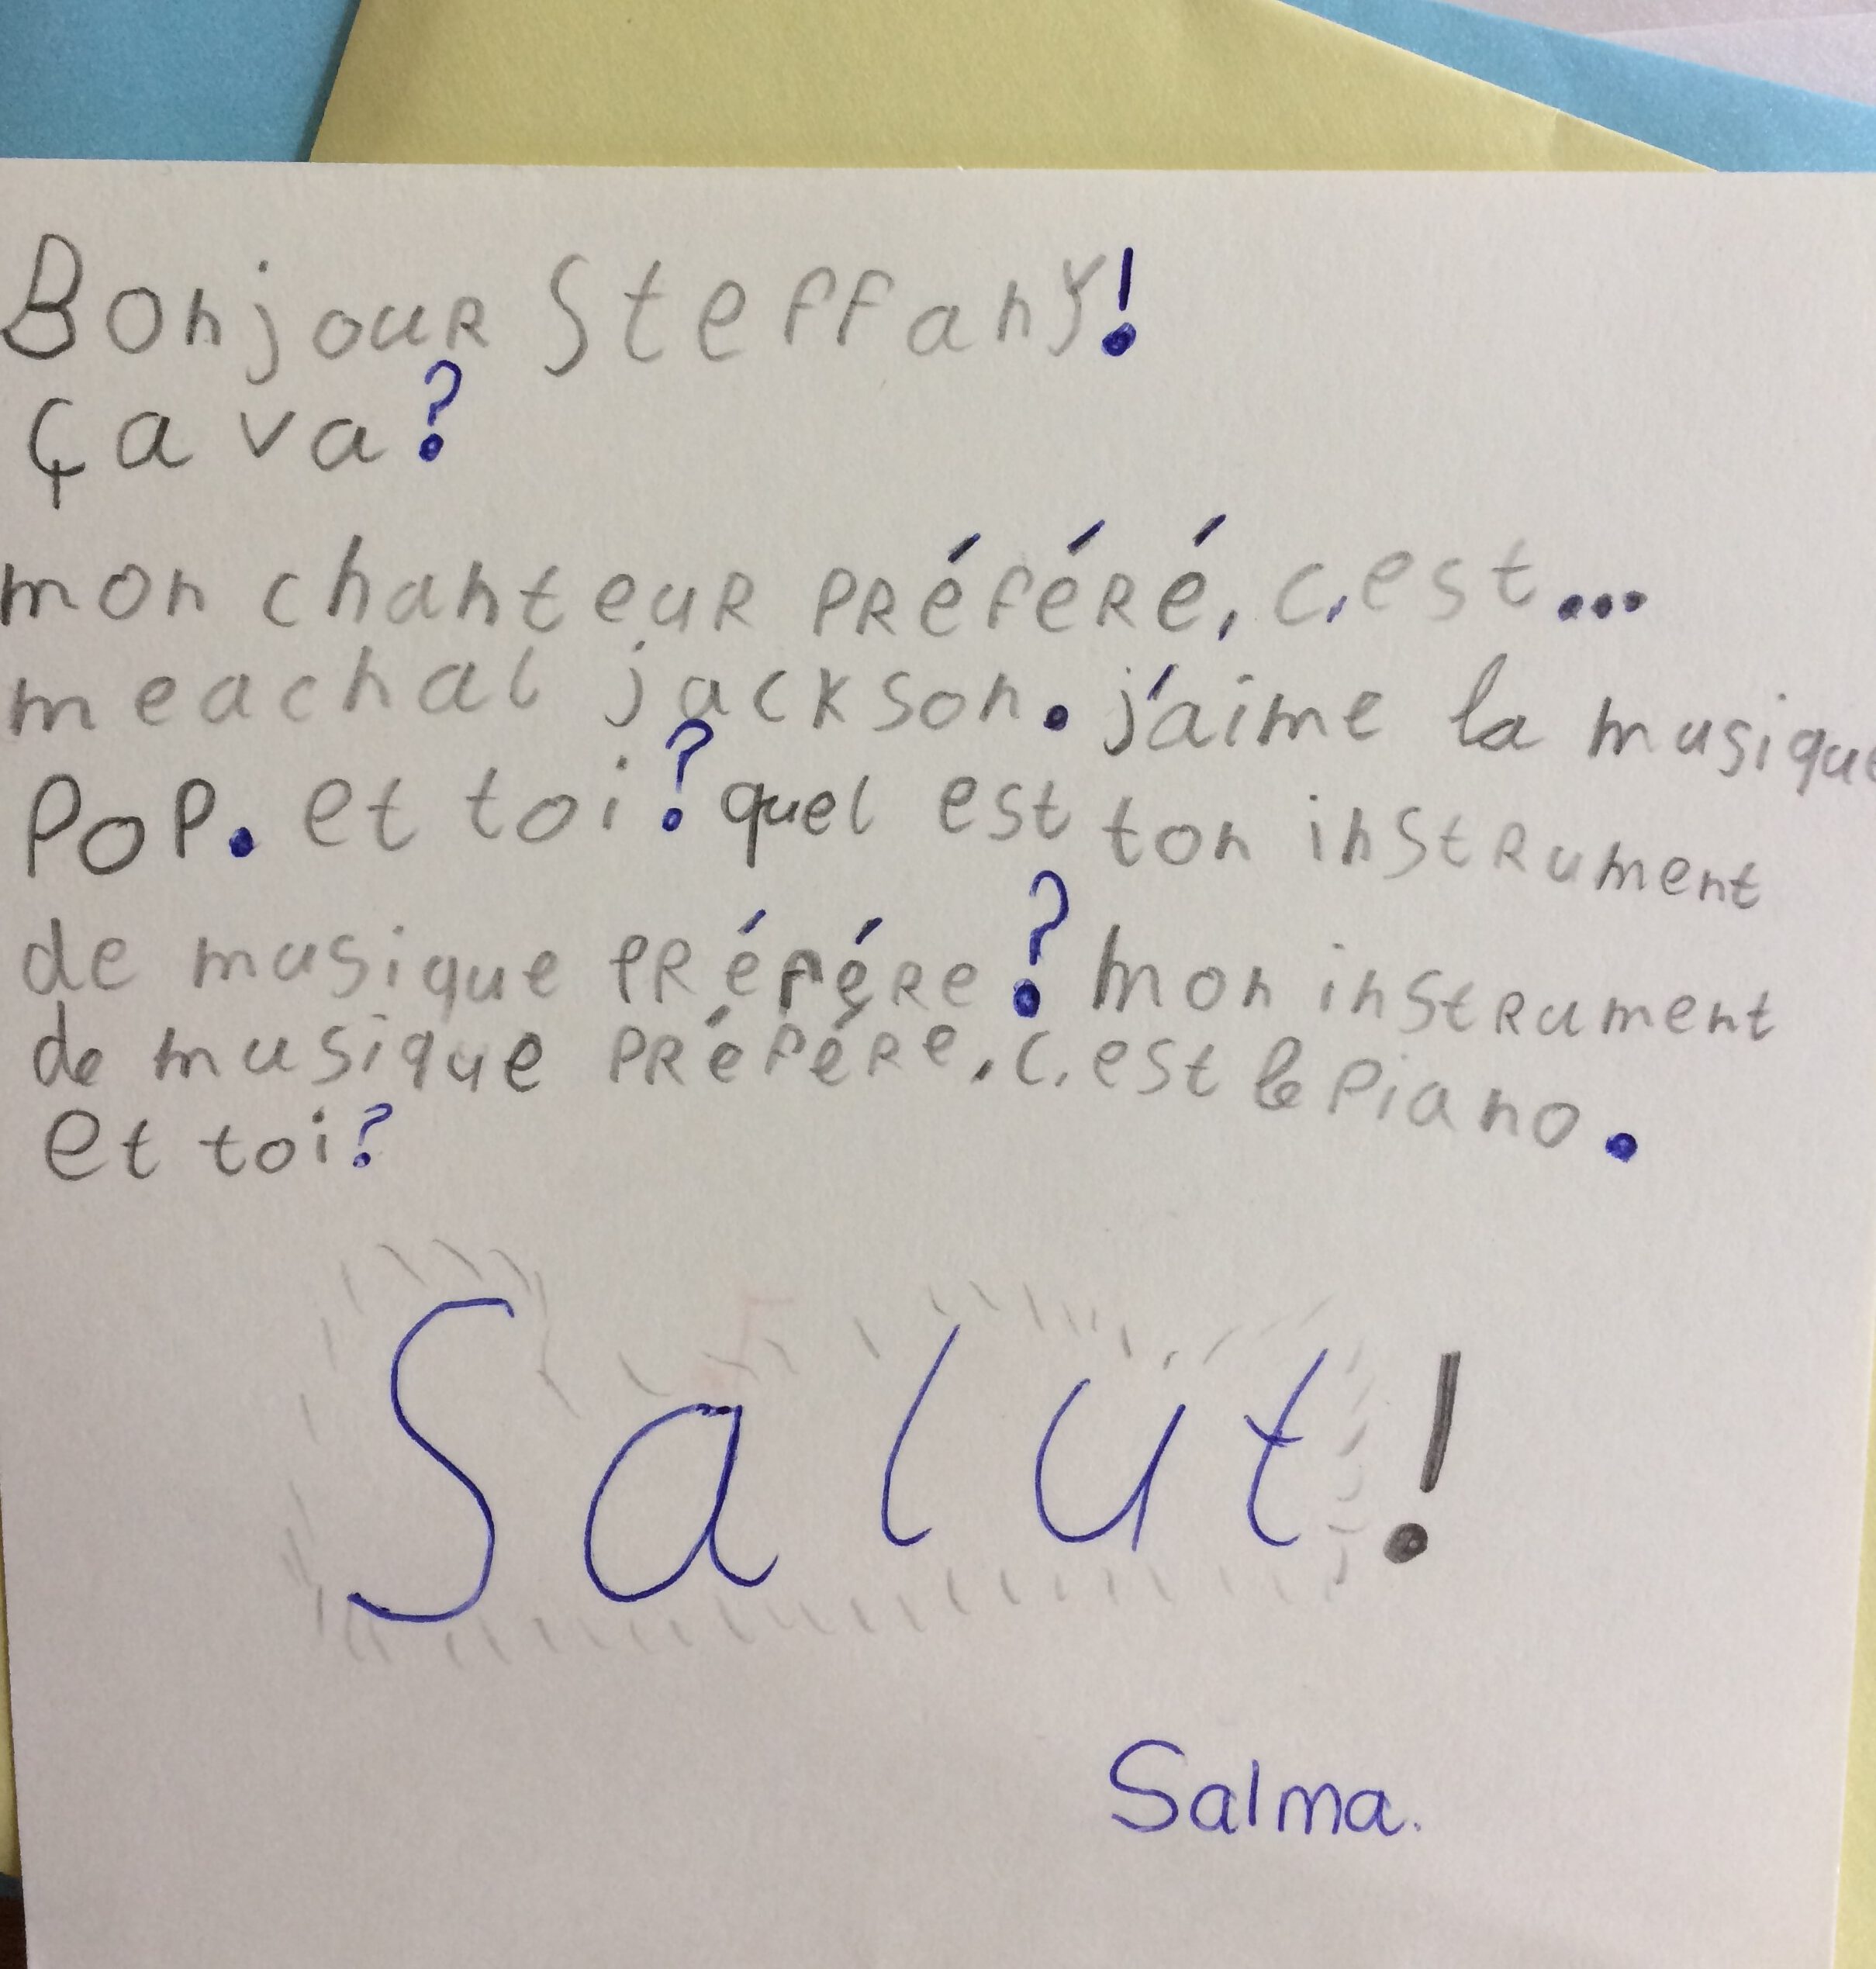 Bonjour Steffany!
ça va?
mon chanteur préféré, c,est...
meachal jackson. j'aime la musique
POP. et toi? quel est ton instrument
de musique préfére? mon instrument
de musique préfére, c,est le piano.
et toi?
Salut!
Salma.